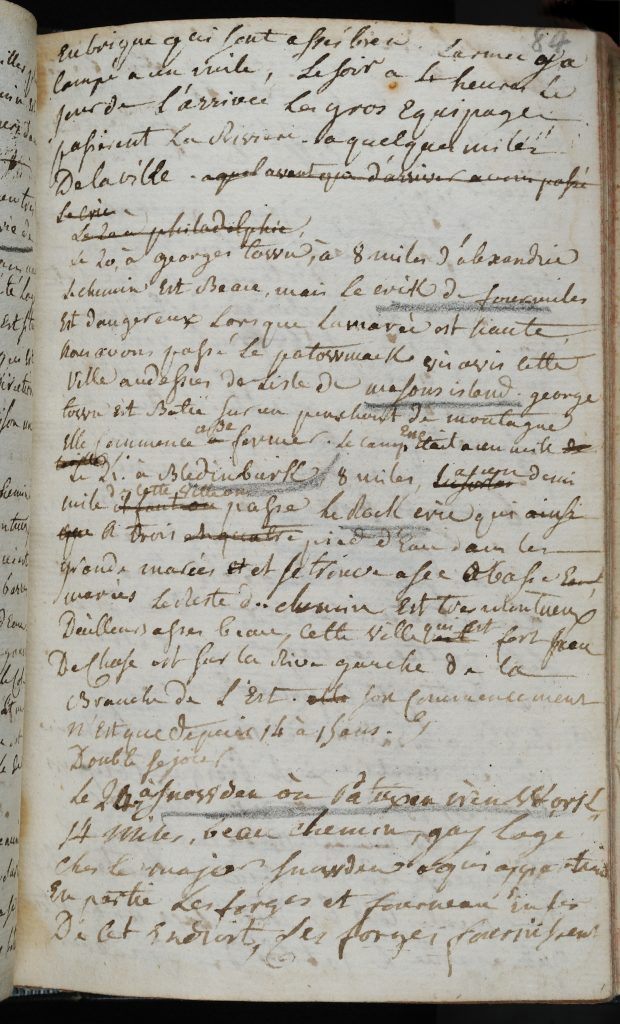 84
En brique qui sont assés bien. Larmée y a
Campé a un mile, Le soir a 4 heures le
jour de L'arrivée Les gros Equipages
passèrent La Riviere a quelques miles
De la ville. a quel avant que d'arriver a un passé
Le 20 a philadelphie,
Le 20, a georges town, a 8 miles d'alexandrie
Le chemin Est Beau, mais Le crik de four miles
Est dangereux Lorsque La marée est haute,
nous avons passé Le patowmack vis avis cette
Ville au dessus de Lisle de masons island. george
town est Batie sur un penchant de montagne
Elle commence a se former. Le camp Etait a un mile de
Le 21. à Bledinburk 8 miles, a un demi
mile de cette ville on passe Le Rock cric qui ainsi
que a trois ou quatre pied d'Eau dans les
grande marées et et se trouve a sec a basse Eau
marées Le Reste du chemin Est tres montueux
Dailleurs asses beau, cette ville qui est fort peu
De Chose est sur La Rive gauche de la
Branche de L'Est. son commencement
n'Est que depuis 14 à 15 ans.
Double sejour
Le 22, à snowden ou patuxen iren Work
14 miles, beau chemin, gay Loge
chés le major snowden a qui appartient
En partie Les forges et fourneau En fer
De Cet Endroit, Les forges fournissent